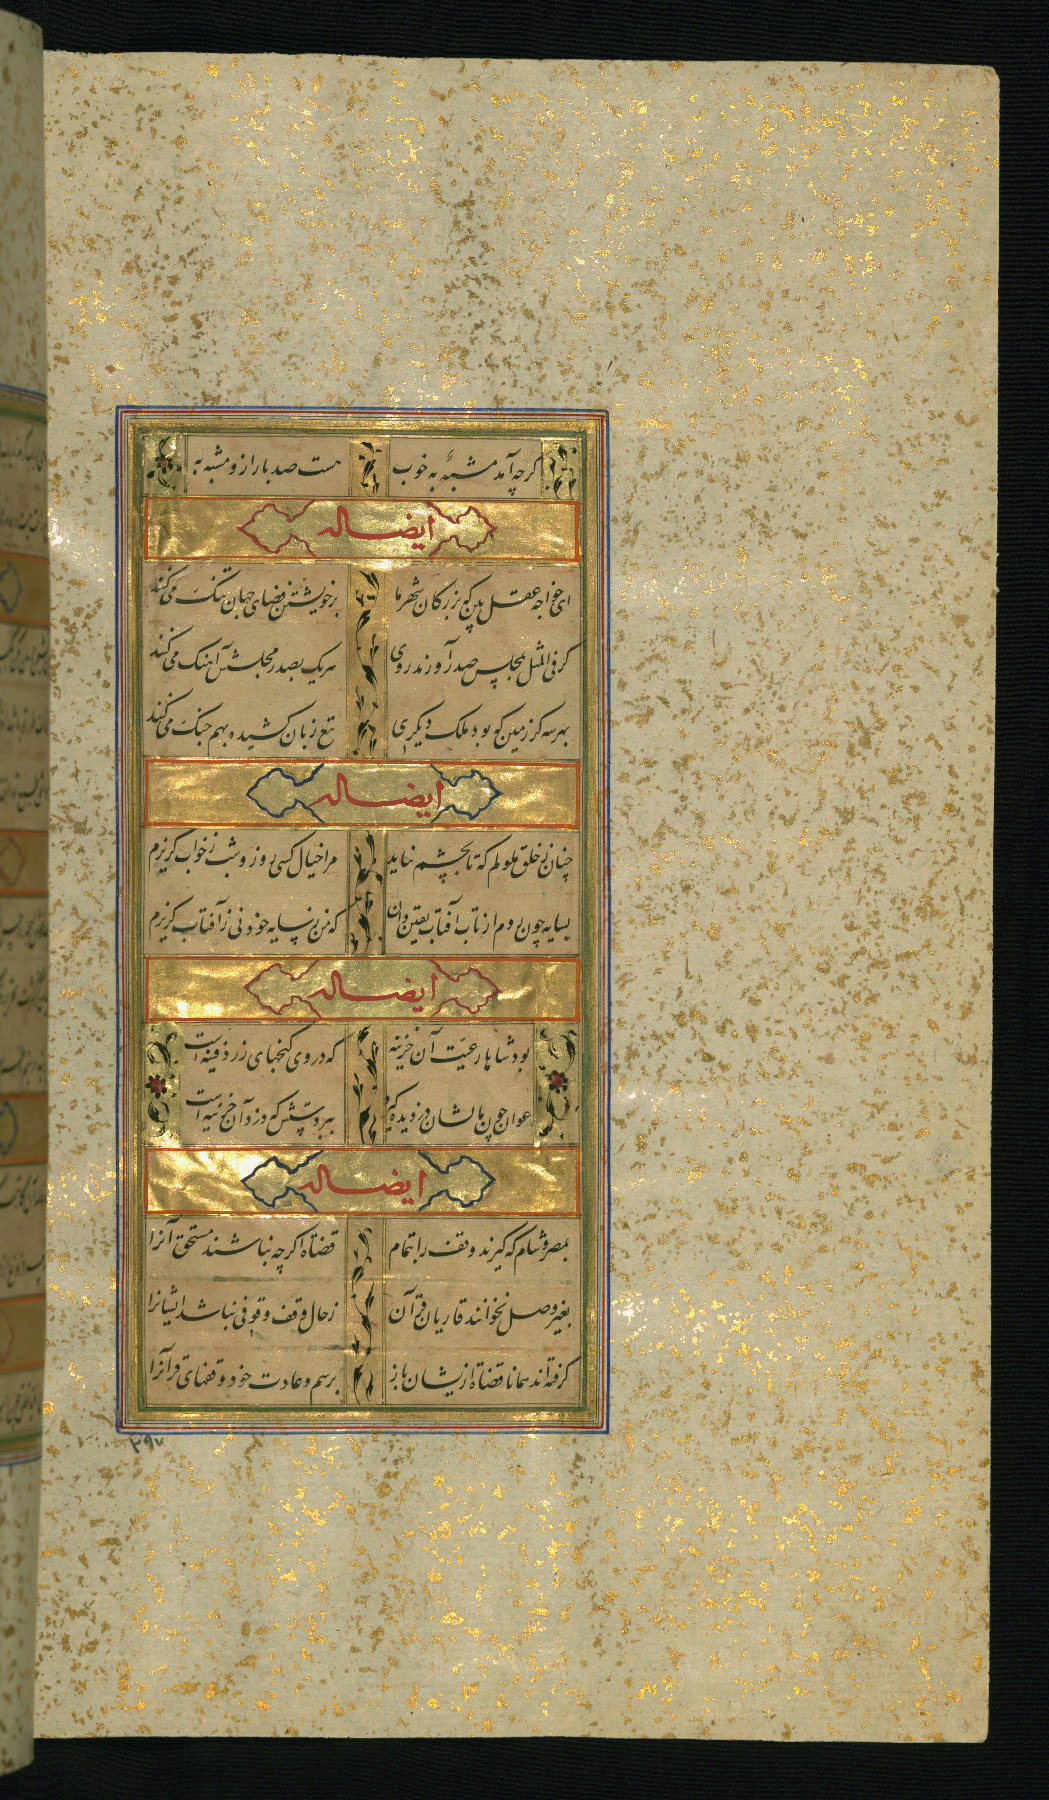 کرچه آمد مشبهٌ به خوب هست صد بار ازو مشبه به
ایضا له
ای خواجه عقل بین که بزرکان شهر ما بر خویشتن فضای جهان تنک می کنند
کر فی المثل بمجلس صدر آورند روی هر یک بصدر مجلسش آهنک می کنند
بهر سه کز زمین که بود ملک دیکری تیغ زبان کشیده بهم جنک می کنند
ایضا له
چنان ز خلق ملولم که تا بچشم نیاید مرا خیال کسی روز و شب ز خواب کریزم
بسایه چون روم از تاب آفتاب یقین دان که من ز سایه خود نی ز آفتاب کریزم
ایضا له
بود شاها رعیت آن خزینه که در وی کنجهای زر دفینه است
عوان چون مالشان دزدیده کیرد ببر دستش که دزد آن خزینه است
ایضا له
بمصر و شام که کیرند وقف را بتمام قضاة اکرچه نباشند مستحق آنرا
بغیر وصل نخوانند قاریان قرآن ز حال وقف وقوفی نباشد ایشانرا
کرفته اند همانا قضاة ازیشان باز برسم و عادت خود وقفهای قرآنرا